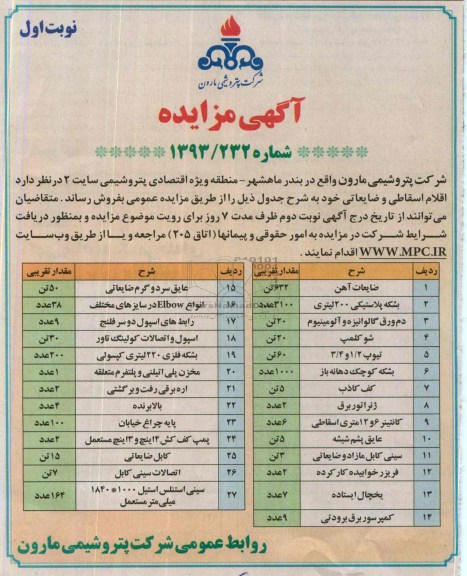 نوبت اول
شرکت پتروشیمی مارون
آگهی مزایده
***** شماره ۱۳۹۳/۲۳۲ *****
شرکت پتروشیمی مارون واقع در بندر ماهشهر - منطقه ویژه اقتصادی پتروشیمی سایت ۲ در نظر دارد
اقلام اسقاطی و ضایعاتی خود به شرح جدول ذیل را از طریق مزایده عمومی بفروش رساند . متقاضیان
می توانند از تاریخ درج آگهی نوبت دوم ظرف مدت ۷ روز برای رویت موضوع مزایده و بمنظور دریافت
شرایط شرکت در مزایده به امور حقوقی و پیمانها (اتاق ۲۰۵) مراجعه و یا از طریق وب سایت
WWW.MPC.IR اقدام نمایند .
ردیف شرح مقدار تقریبی
۱ ضایعات آهن ۶۳۲تن
۲ بشکه پلاستیکی ۲۰۰لیتری ۳۱۰۰عدد
۳ دم ورق گالوانیزه و آلومینیوم ۲۰تن
۴ شوکلمپ ۲۰تن
۵ تیوپ ۱/۲ و ۳/۴ ۶۰تن
۶ بشکه کوچک دهانه باز ۱۰۰۰عدد
۷ کف کاذب ۵تن
۸ ژنراتور برق ۲عدد
۹ کانتینر ۶ و ۱۲متری اسقاطی ۶عدد
۱۰ عایق پشم شیشه ۵تن
۱۱ سینی کابل مازاد و ضایعاتی ۳تن
۱۲ فریزر خوابیده کارکرده ۲عدد
۱۳ یخچال ایستاده ۷عدد
۱۴ کمپرسور برق برودتی ۹عدد
ردیف شرح مقدار تقریبی
۱۵ عایق سرد و گرم ضایعاتی ۵۰تن
۱۶ انواع Elbow در سایزهای مختلف ۳۸عدد
۱۷ رابط های اسپول دو سر فلنج ۹عدد
۱۸ اسپول و اتصالات کولینگ تاور ۳۰تن
۱۹ بشکه فلزی ۲۲۰لیتری کپسولی ۲۰۰عدد
۲۰ مخزن پلی اتیلنی و پلتفرم متعلقه ۱عدد
۲۱ اره برقی رفت و برگشتی ۲عدد
۲۲ بالابرنده ۴عدد
۲۳ پایه چراغ خیابان ۱۰۰عدد
۲۴ پمپ کف کش ۲اینچ و ۳اینچ مستعمل ۲عدد
۲۵ کابل ضایعاتی ۱۵تن
۲۶ اتصالات سینی کابل ۷تن
۲۷ سینی استنلس استیل ۱۰۰۰*۱۸۴۰
میلی متر مستعمل ۱۶۴عدد
روابط عمومی شرکت پتروشیمی مارون